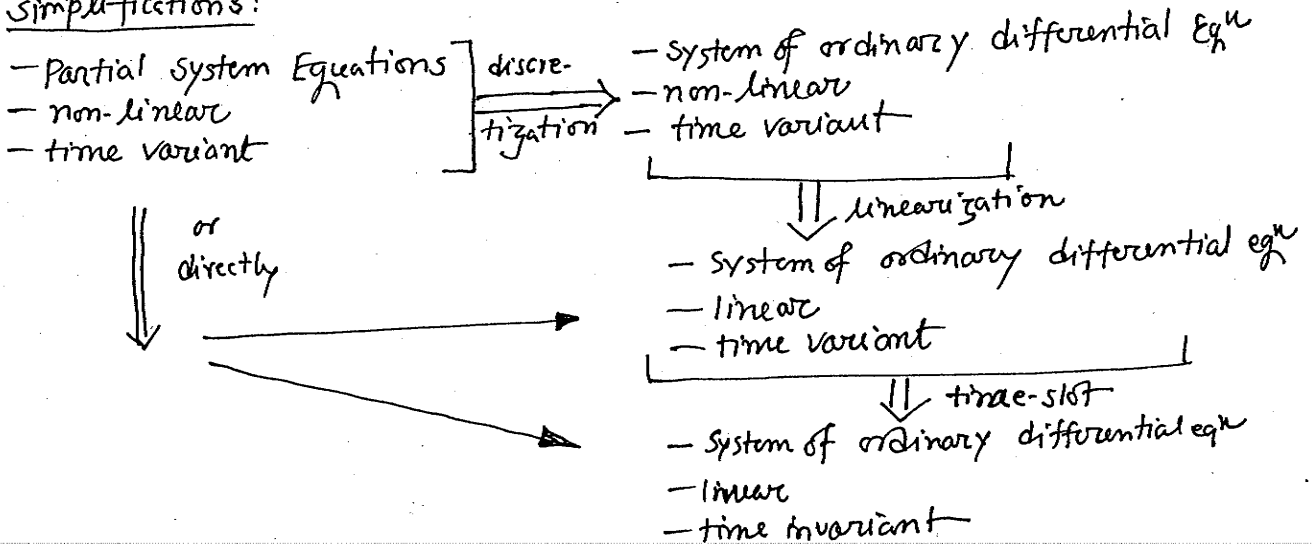 Simplifications:
- Partial System Equations
- non-linear
- time variant
discre-
tization
- System of ordinary differential Eqn
- non-linear
- time variant
linearization
or
directly
- System of ordinary differential eqn
- linear
- time variant
time-slot
- System of ordinary differential eqn
- linear
- time invariant